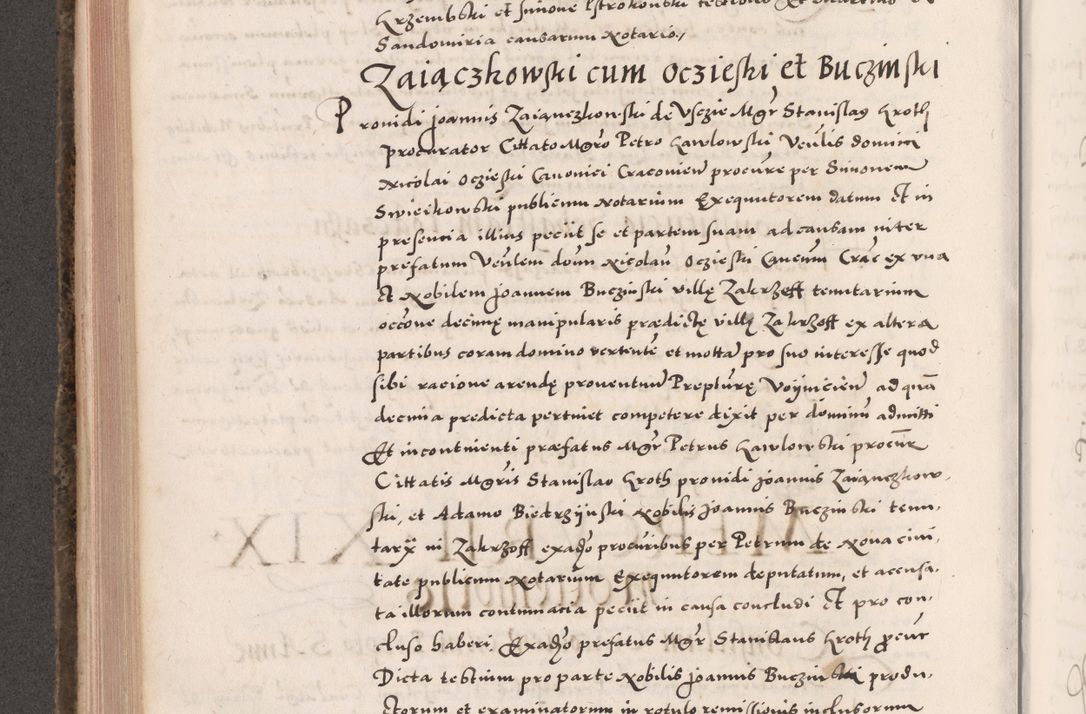 Krzembski et Simone Pstrokonski testibus Et Martino de
Sandomiria causarum Notario
Zaiączkowski cum Oczieski et Buczinski
Providi Joannis Zaiączkowski de Usczie Mgr Stanislaus Kroth
procurator Cittato Mgro Petro Gawlowski Venlis domini
Nicolai Oczieski Canonici Cracovien procure per Simonem
Swieikowski publicum Notarium Exequutorem datum Et in
presencia illius peciit se et partem suam ad causam inter
prefatum Venlem donn Nicolau Oczieski Canenm Crac ex una
Et Nobilem Joannem Buczinski villę Zakrzeff tenutarium
occone decimę manipularis prædictę villę Zakrzoff ex altera
partibus coram domino vertente et motta pro suo interesse quod
sibi racione arendę proventuum Preptůrę Voynicien ad quā
decima predicta pertinet competere dixit per dominū admitti
Et incontinenti præfatus Mgr Petrus Gawlowski procur
Cittatis Mgris Stanislao Kroth providi Joannis Zaiączkow-
ski, et Adamo Biedrzijnski Nobilis Joannis Buczinski tenu-
tarij in Zakrzoff ex adverso procuribus per Petrum de Nova civi-
tate publicum Notarium Exequutorem deputatum, et accusa-
ta illorum contumacia peciit in causa concludi Et pro con-
cluso haberi. Ex adverso prefatus Mgr Stanislaus Kroth procur
Dicta testium pro parte Nobilis Joannis Buczinski produ-
ctorum et examinatorum in rotulo remissionis inclusorum